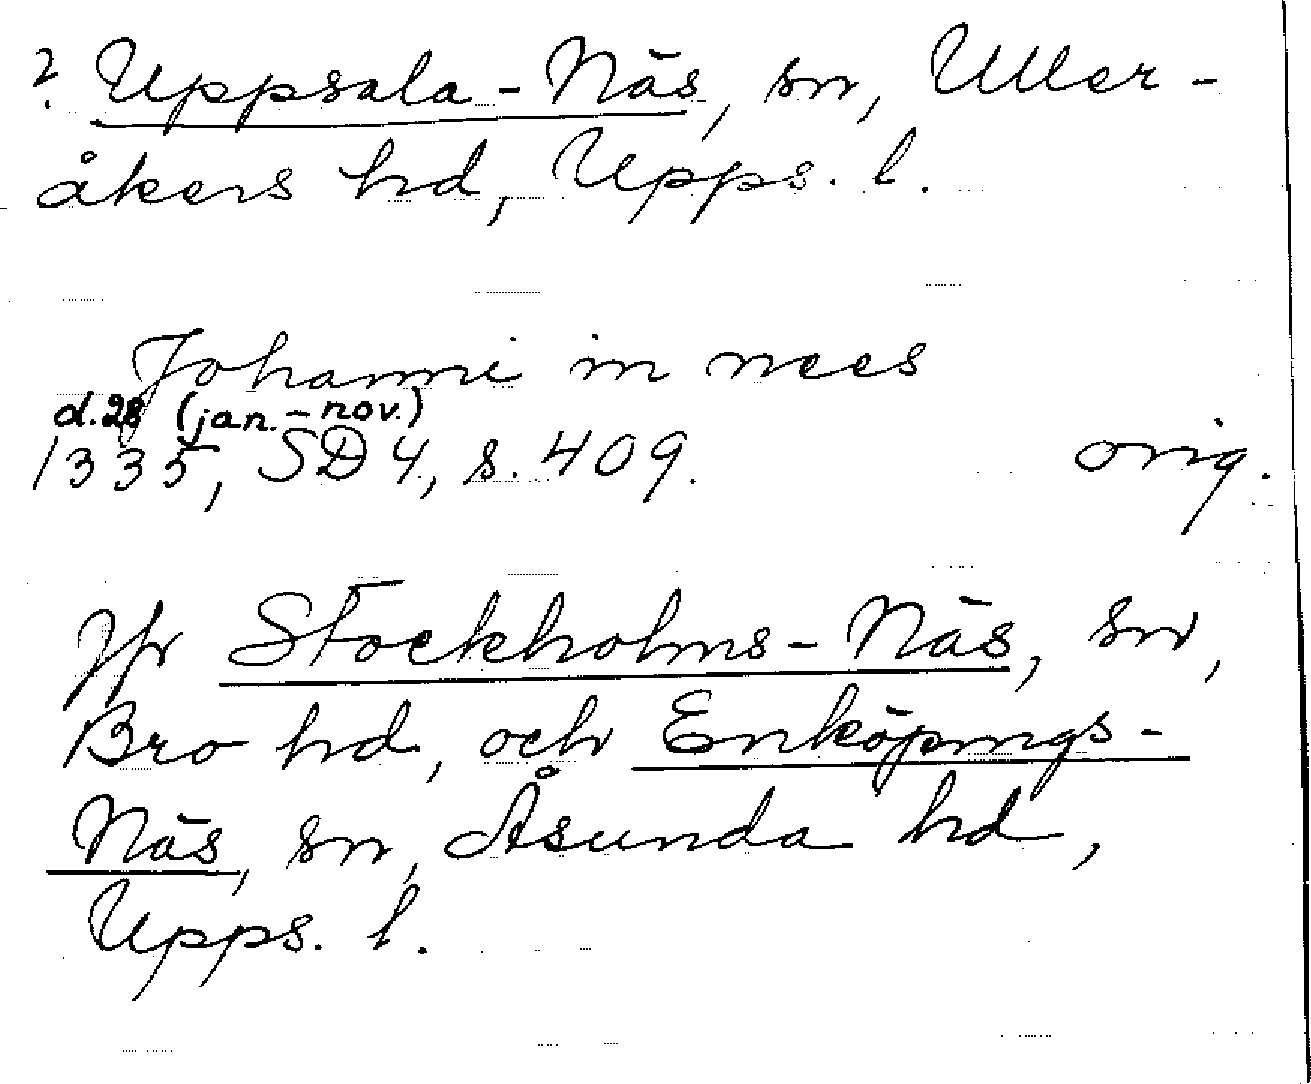 ? Uppsala-Näs, sn, Uller-
åkers hd, Upps. l.
Johanni in nees
d.28 (jan.-nov.)
1335, SD 4, s. 409. orig.
Jfr Stockholms-Näs, sn,
Bro hd, och Enköpings-
Näs, sn, Åsunda hd,
Upps. l.